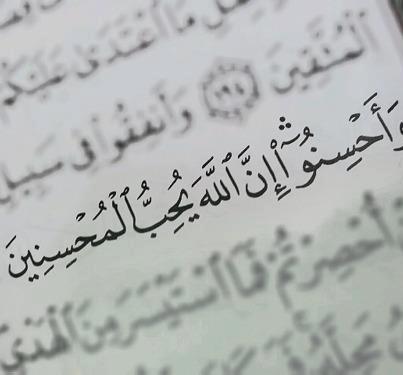 مَا ٱعْتَدَىٰ عَلَيْكُمْ
ٱلْمُتَّقِينَ ١٩٤ وَأَنفِقُوا۟ فِى سَبِيلِ
وَأَحْسِنُوٓا۟ ۛ إِنَّ ٱللَّهَ يُحِبُّ ٱلْمُحْسِنِينَ
أُحْصِرْتُمْ فَمَا ٱسْتَيْسَرَ مِنَ ٱلْهَدْىِ
مَحِلَّهُۥ